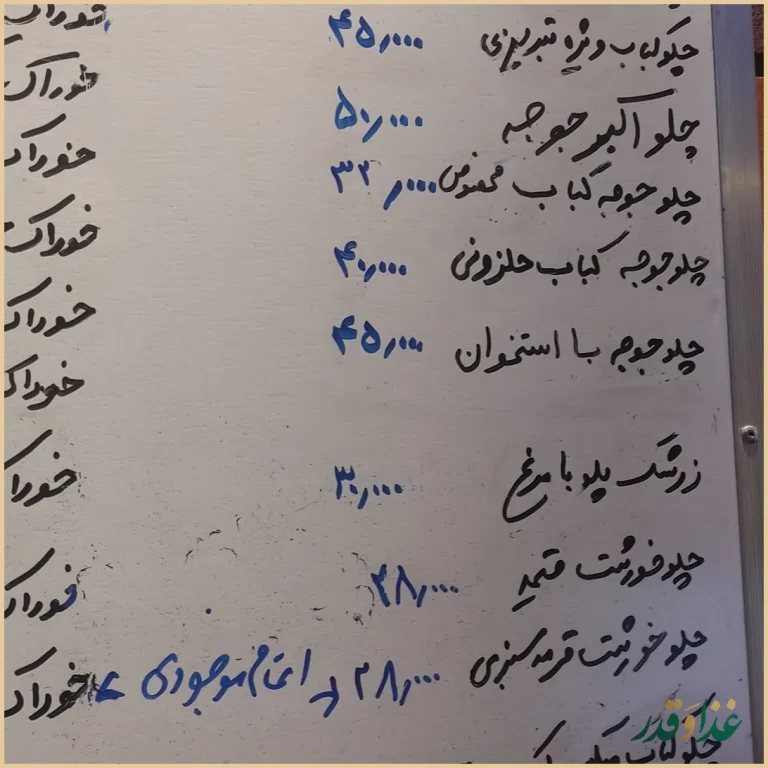 چلوکباب ویژه تبریزی ۴۵٫۰۰۰ خوراک
چلو اکبر جوجه ۵۰٫۰۰۰ خوراک
چلو جوجه کباب مخصوص ۳۲٫۰۰۰ خوراک
چلو جوجه کباب حلزونی ۴۰٫۰۰۰ خوراک
چلو جوجه با استخوان ۴۵٫۰۰۰ خوراک
خوراک
زرشک پلو با مرغ ۳۰٫۰۰۰ خوراک
چلو خورشت قیمه ۲۸٫۰۰۰ خوراک
چلو خورشت قرمه سبزی ۲۸٫۰۰۰ اتمام موجودی خوراک
چلو کباب
غذا و قدر